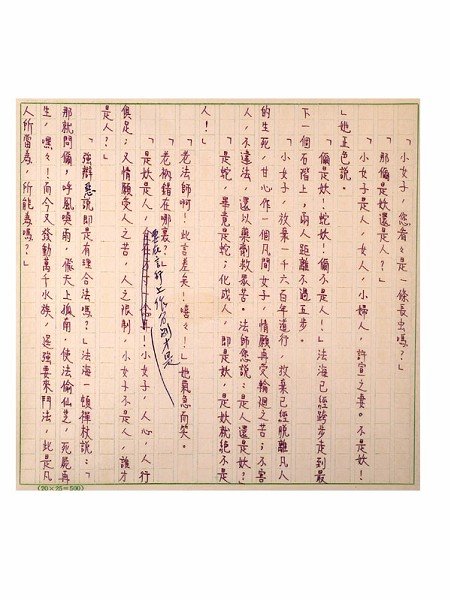 「小女子，您看々是一條長虫嗎？」
「那個嘛？」
「小女子是人，女人，小婦人，許宣之妻。不是妖！
」她正色說。
「偏是妖！蛇妖！偏不是人！」法海已經跨步走到最
下一個石階上，兩人距離不過五步。
「小女子，放棄一千六百年道行，放棄已經脫離凡人
的生死，甘心作一個凡間女子，情願再受輪迴之苦；不害
人，不違法，還以藥劑救眾苦。法師您說：是人還是妖？
「是蛇，畢竟是蛇；化成人，即是妖，是妖就絕不是
人！」
「老法師啊！此言差矣！嘻々！」她氣急而笑。
「老衲錯在哪裏？」
「是妖是人，
應在言行上作分別才是
！小女子，人心，人行
俱足；又情願受人之苦，人之限制，小女子不是人，誰才
是人？」
「強辯惡說即是有理合法嗎？」法海一頓禪杖說：「
那就問偏，呼風喚雨，像天上
使法偷仙芝，死屍再
生，嘿々！而今又發動萬千水族，逞強要來鬥法，此是凡
人所當為，所能為嗎？」
(20×25=500)